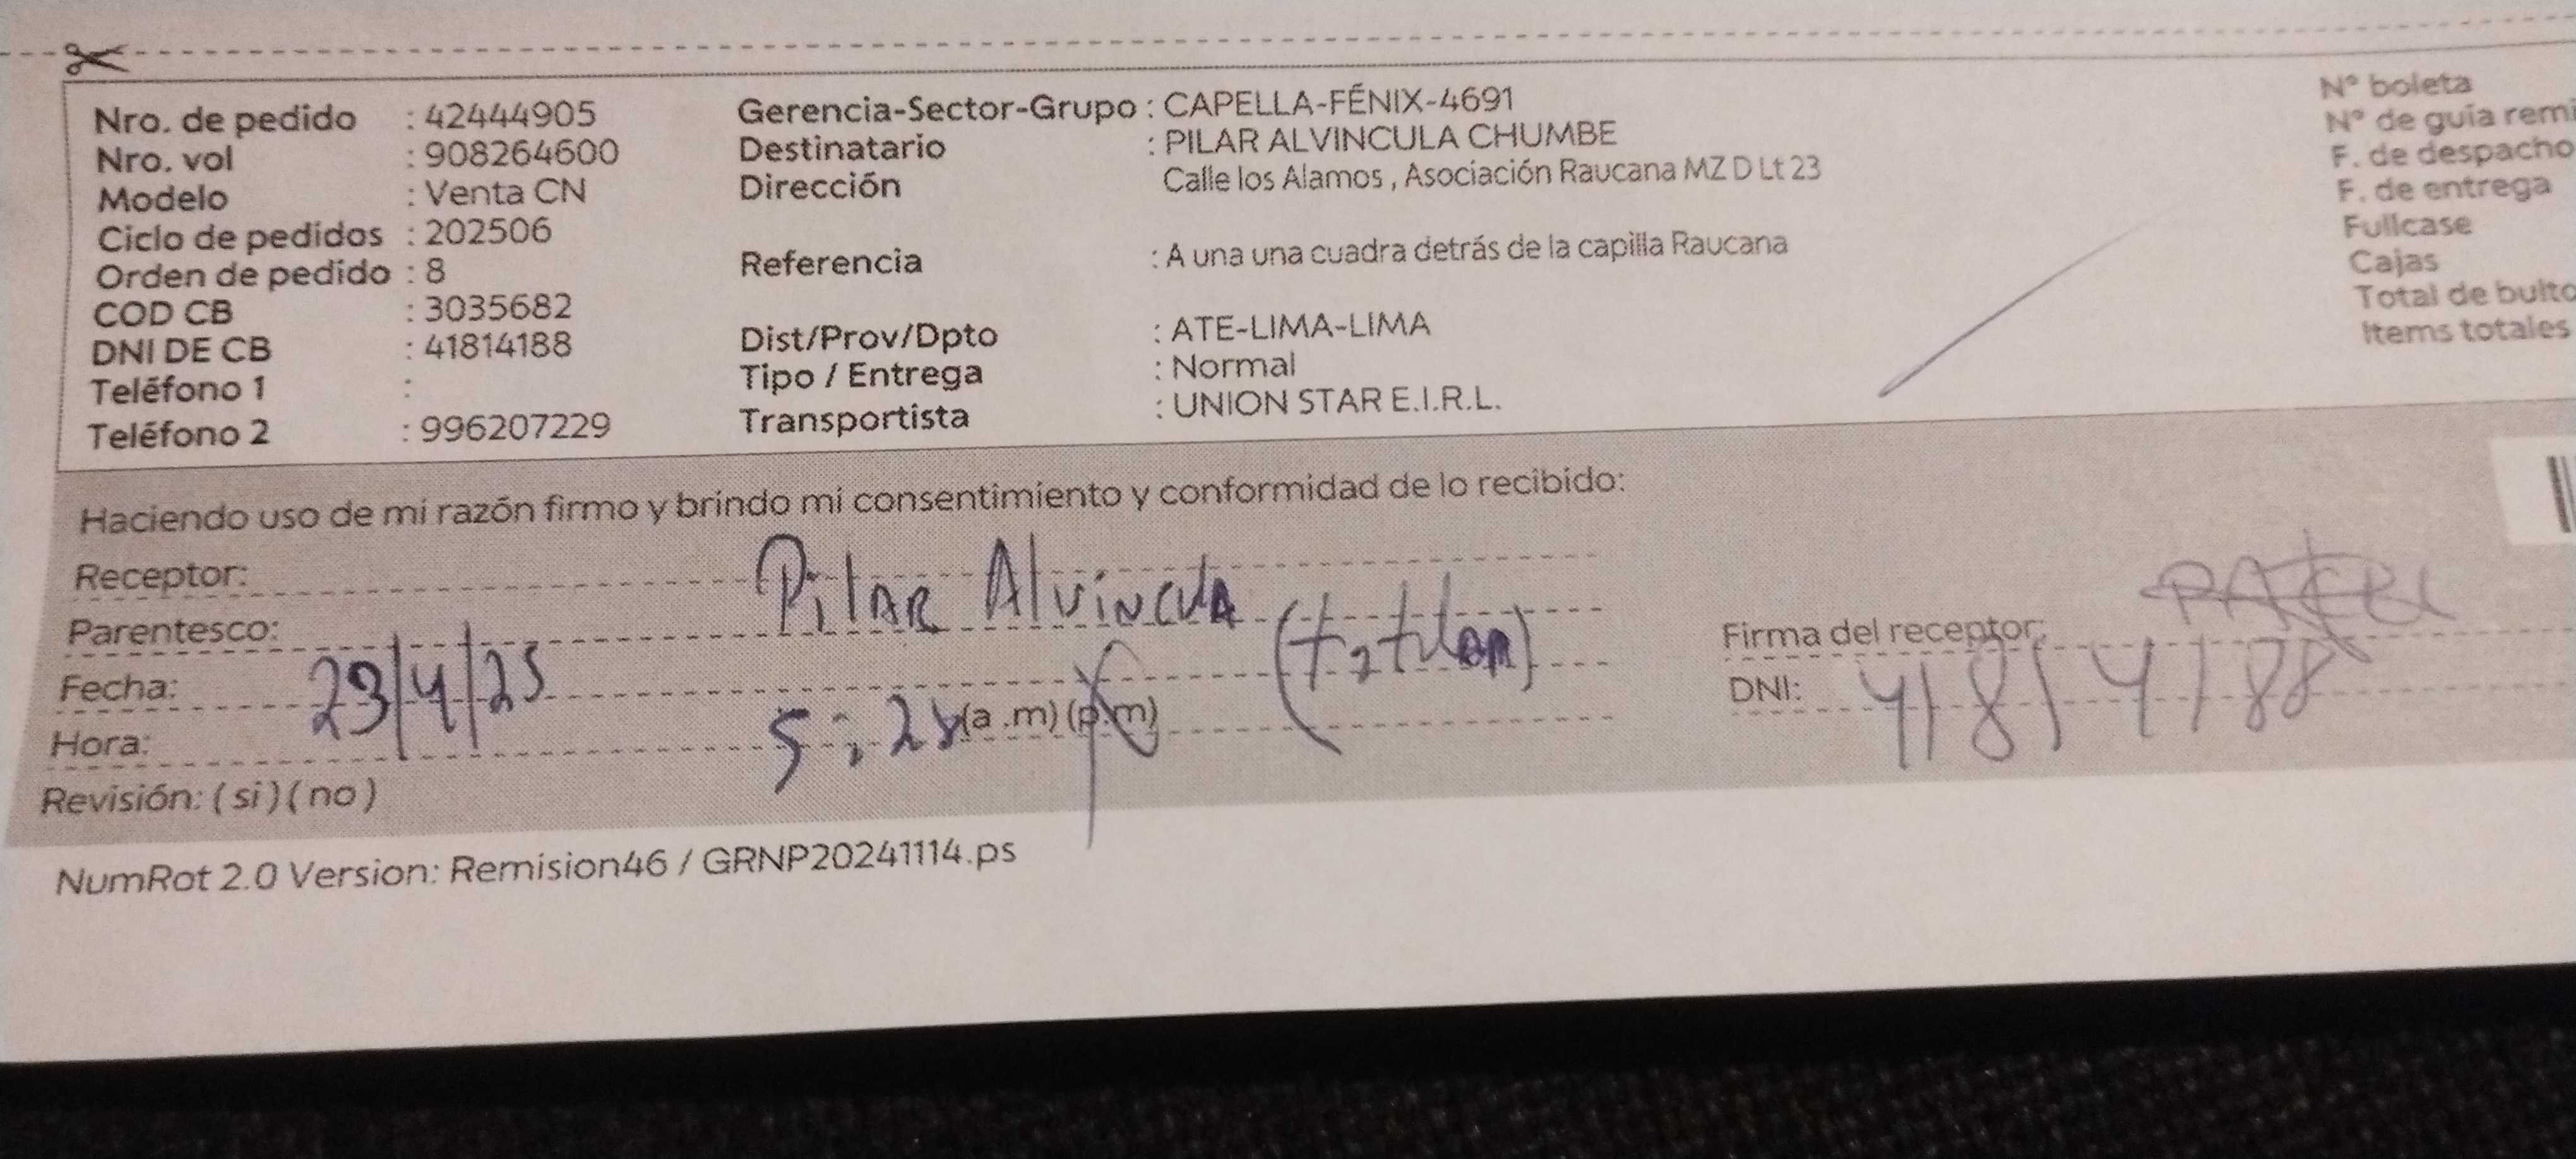 Nro. de pedido : 42444905
Nro. vol : 908264600
Modelo : Venta CN
Ciclo de pedidos : 202506
Orden de pedido : 8
COD CB : 3035682
DNI DE CB : 41814188
Teléfono 1 :
Teléfono 2 : 996207229
Gerencia-Sector-Grupo : CAPELLA-FÉNIX-4691
Destinatario : PILAR ALVINCULA CHUMBE
Dirección Calle los Alamos , Asociación Raucana MZ D Lt 23
Referencia : A una una cuadra detrás de la capilla Raucana
Dist/Prov/Dpto : ATE-LIMA-LIMA
Tipo / Entrega : Normal
Transportista : UNION STAR E.I.R.L.
N° boleta
N° de guía remi
F. de despacho
F. de entrega
Fullcase
Cajas
Total de bulto
Items totales
Haciendo uso de mi razón firmo y brindo mi consentimiento y conformidad de lo recibido:
Receptor: Pilar Alvincula
Parentesco: (titular)
Fecha: 23/4/25
Hora: 5:28 (a .m) (p.m)
Revisión: ( si ) ( no )
Firma del receptor:
DNI: 41814188
NumRot 2.0 Version: Remision46 / GRNP20241114.ps